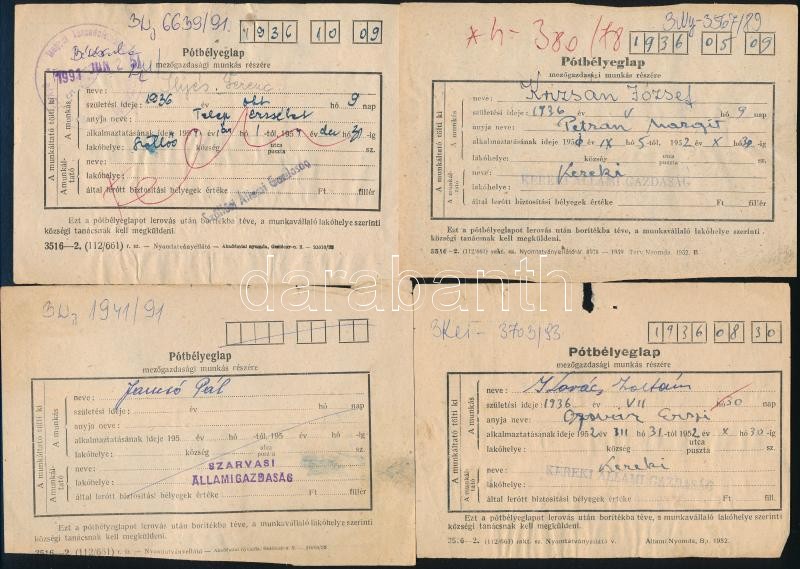 3Wy 6639/91.
1936 10 09
Pótbélyeglap
mezőgazdasági munkás részére
A munkáltató tölti ki
A munkás
A munkáltató
neve: Illyés Ferenc
születési ideje: 1936 év okt hó 9 nap
anyja neve: Telep Erzsébet
alkalmaztatásának ideje 195 év hó 1-től, 195 év dec hó 31-ig
lakóhelye: Szőllős község utca puszta sz.
neve:
lakóhelye:
Szőllősi Állami Gazdaság
által lerótt biztosítási bélyegek értéke Ft fillér
Ezt a pótbélyeglapot lerovás után borítékba téve, a munkavállaló lakóhelye szerinti
községi tanácsnak kell megküldeni.
3516—2. (112/661) r. sz. — Nyomtatványellátó
*h- 380/78
3Wy-3567/89
1936 05 09
Pótbélyeglap
mezőgazdasági munkás részére
A munkáltató tölti ki
A munkás
A munkáltató
neve: Krizsán József
születési ideje: 1936 év V hó 9 nap
anyja neve: Petrán Margit
alkalmaztatásának ideje 195 év IX hó 5-től, 1952 év X hó 30-ig
lakóhelye: község utca puszta sz.
neve: Kereki
lakóhelye: KEREKI ÁLLAMI GAZDASÁG
által lerótt biztosítási bélyegek értéke Ft fillér
Ezt a pótbélyeglapot lerovás után borítékba téve, a munkavállaló lakóhelye szerinti
községi tanácsnak kell megküldeni.
3516—2. (112/661) sekt. sz. Nyomtatványellátó
darabanth
3Wy 1941/91
Pótbélyeglap
mezőgazdasági munkás részére
A munkáltató tölti ki
A munkás
A munkáltató
neve: Jansó Pál
születési ideje: év hó nap
anyja neve:
alkalmaztatásának ideje 195 év hó -től, 195 év hó -ig
lakóhelye: község utca puszta sz.
neve: SZARVASI
lakóhelye: ÁLLAMI GAZDASÁG
által lerótt biztosítási bélyegek értéke Ft fillér
Ezt a pótbélyeglapot lerovás után borítékba téve, a munkavállaló lakóhelye szerinti
községi tanácsnak kell megküldeni.
3516—2. (112/661) r. sz. — Nyomtatványellátó
3Kei- 3703/83
1936 08 30
Pótbélyeglap
mezőgazdasági munkás részére
A munkáltató tölti ki
A munkás
A munkáltató
neve: Kovács Zoltán
születési ideje: 1936 év VII hó 30 nap
anyja neve: Erzsi
alkalmaztatásának ideje 1952 év VII hó 31-től, 1952 év X hó 30-ig
lakóhelye: község utca puszta sz.
neve: Kereki
lakóhelye: KEREKI ÁLLAMI GAZDASÁG
által lerótt biztosítási bélyegek értéke Ft fill.
Ezt a pótbélyeglapot lerovás után borítékba téve, a munkavállaló lakóhelye szerinti
községi tanácsnak kell megküldeni.
3516—2. (112/661) sekt. sz. Nyomtatványellátó v. Állami Nyomda, Bp. 1952.